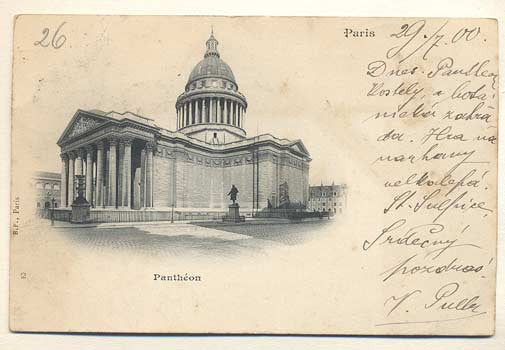 26
Paris
29/7 00.
Dnes Pantheon
kostely a bota-
nická zahra-
da. Hra na
varhany
velkolepá.
St. Sulpice.
Srdečný
pozdrav!
V.
Panthéon
B.F., Paris
42